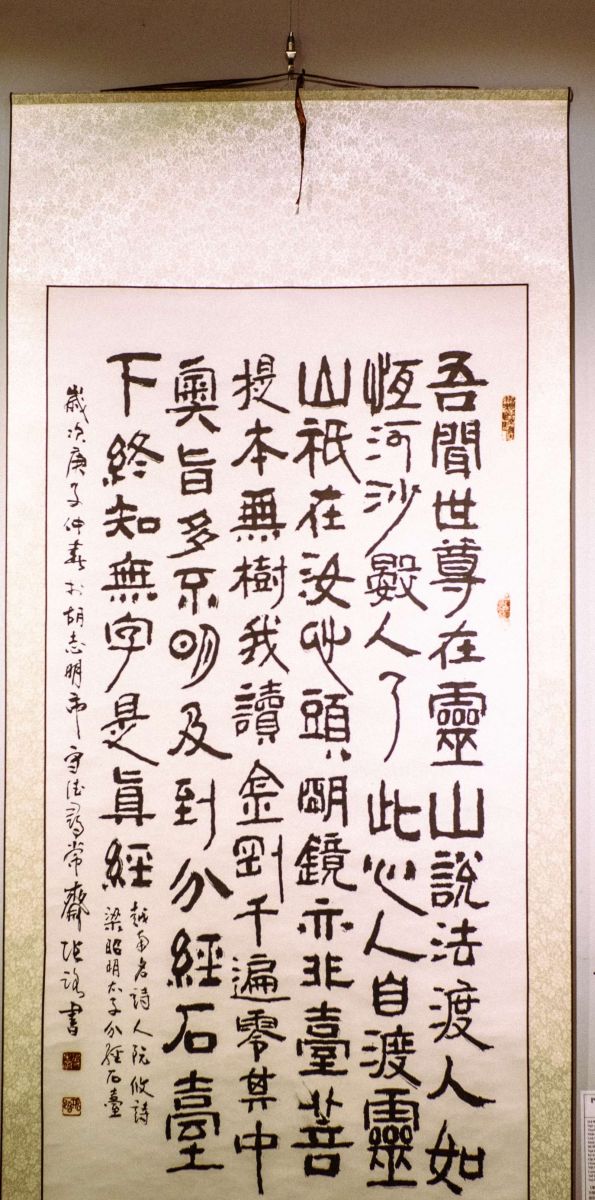 吾聞世尊在靈山說法渡人如
恆河沙數人了此心人自渡靈
山祇在汝心頭明鏡亦非臺菩
提本無樹我讀金剛千遍零其中
奧旨多不明及到分經石臺
下終知無字是眞經
越南名詩人阮攸詩
梁昭明太子分經石臺
歲次庚子仲春於胡志明市守德尋常齋書